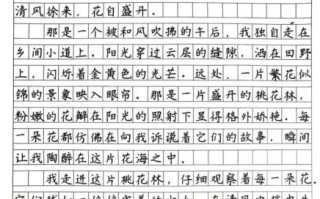 清风徐来，花自盛开。
那是一个被和风吹拂的午后，我独自走在
乡间小道上。阳光穿过云层的缝隙，洒在田野
上，闪烁着金黄色的光芒。远处，一片繁花似
锦的景象映入眼帘。那是一片盛开的桃花林，
粉嫩的花瓣在阳光的照射下显得格外娇艳。每
一朵花都仿佛在向我诉说着它们的故事，瞬间
让我陶醉在这片花海之中。
我走进这片桃花林，仔细观察着每一朵花。